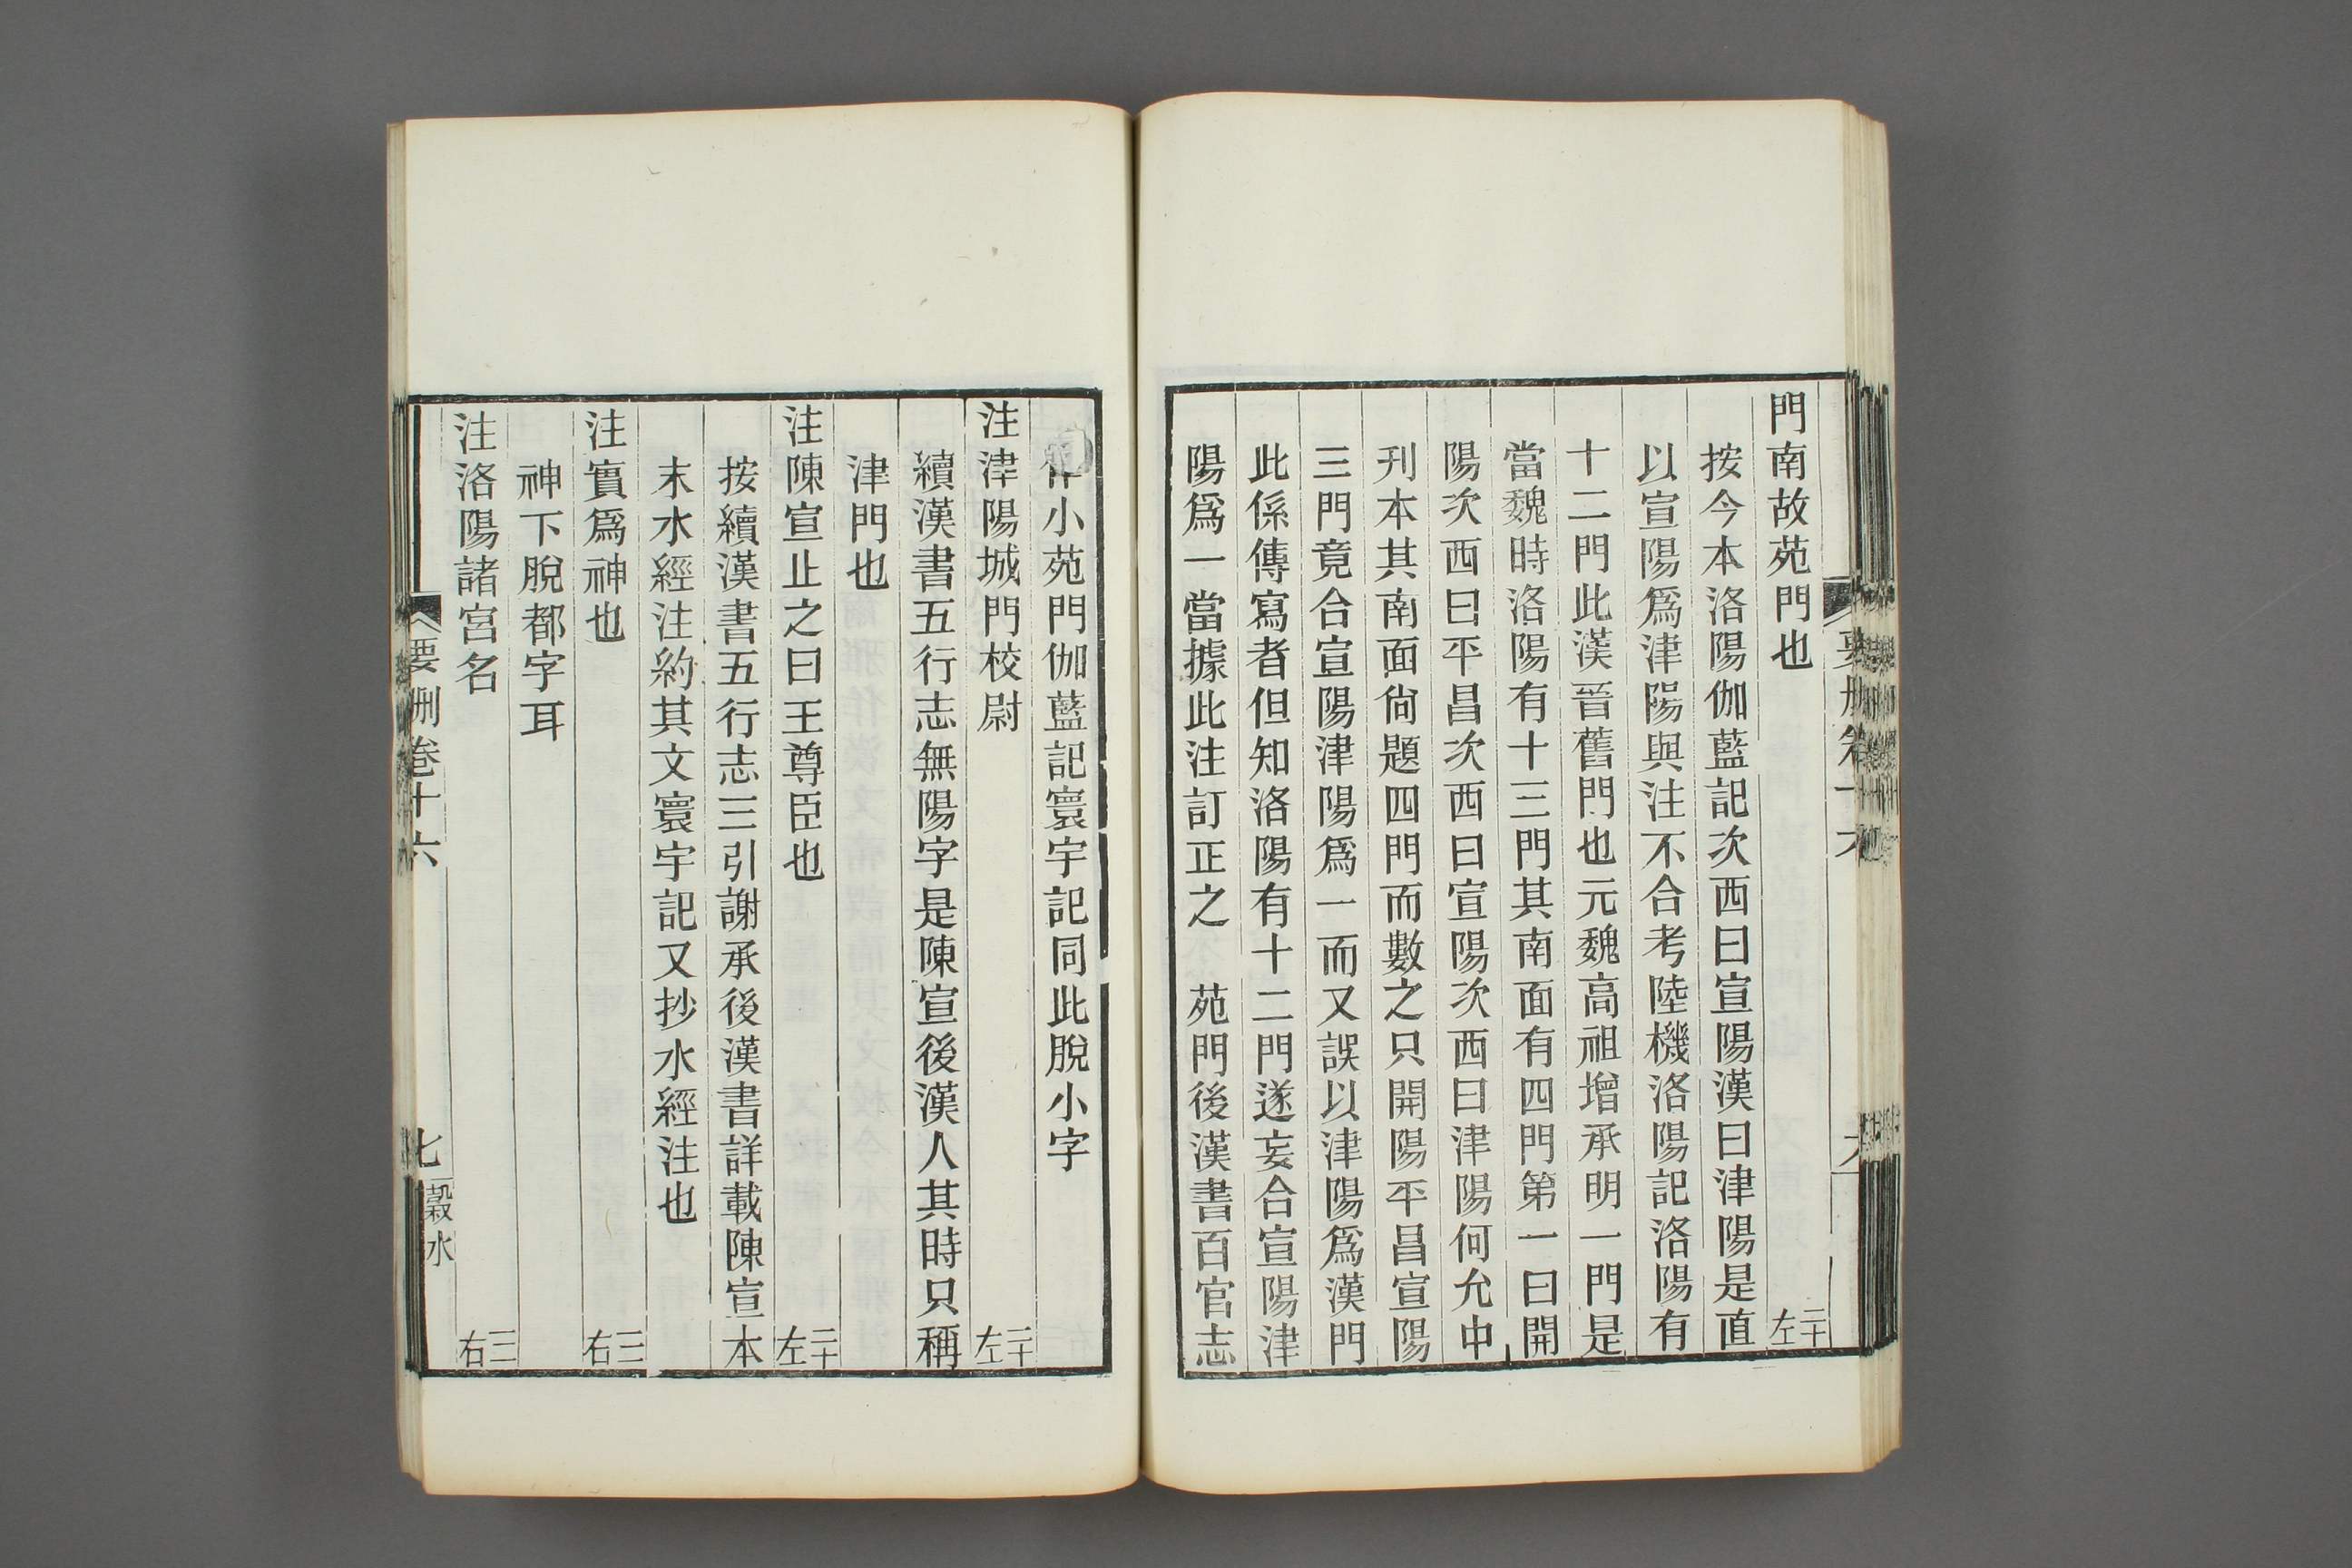 門南故苑門也 二十左
按今本洛陽伽藍記次西曰宣陽漢曰津陽是直
以宣陽爲津陽與注不合考陸機洛陽記洛陽有
十二門此漢晉舊門也元魏高祖增承明一門是
當魏時洛陽有十三門其南面有四門第一曰開
陽次西曰平昌次西曰宣陽次西曰津陽何允中
刊本其南面尙題四門而數之只開陽平昌宣陽
三門竟合宣陽津陽爲一而又誤以津陽爲漢門
此係傳寫者但知洛陽有十二門遂妄合宣陽津
陽爲一當據此注訂正之 苑門後漢書百官志
作小苑門伽藍記寰宇記同此脫小字
注津陽城門校尉 二十左
續漢書五行志無陽字是陳宣後漢人其時只稱
津門也
注陳宣止之曰王尊臣也 二十左
按續漢書五行志三引謝承後漢書詳載陳宣本
末水經注約其文寰宇記又抄水經注也
注實爲神也 三二右
神下脫都字耳
注洛陽諸宮名 三二右
要刪卷十六 七 穀水